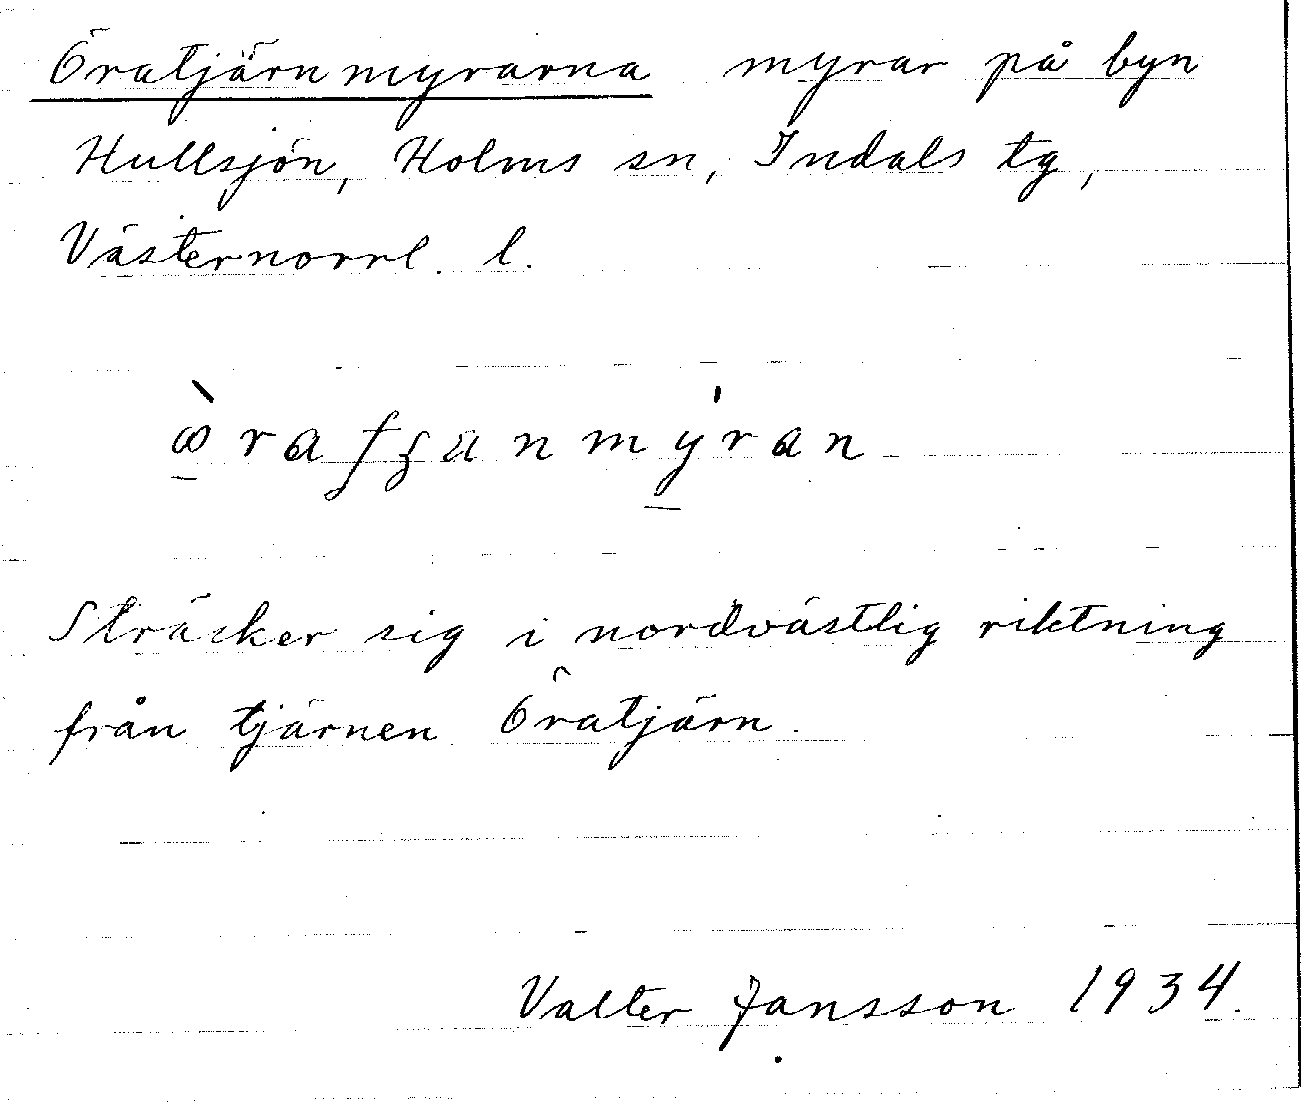 Öratjärnmyrarna myrar på byn
Hullsjön, Holms sn, Indals tg,
Västernorrl. l.
Sträcker sig i nordvästlig riktning
från tjärnen Öratjärn.
Valter Jansson 1934.